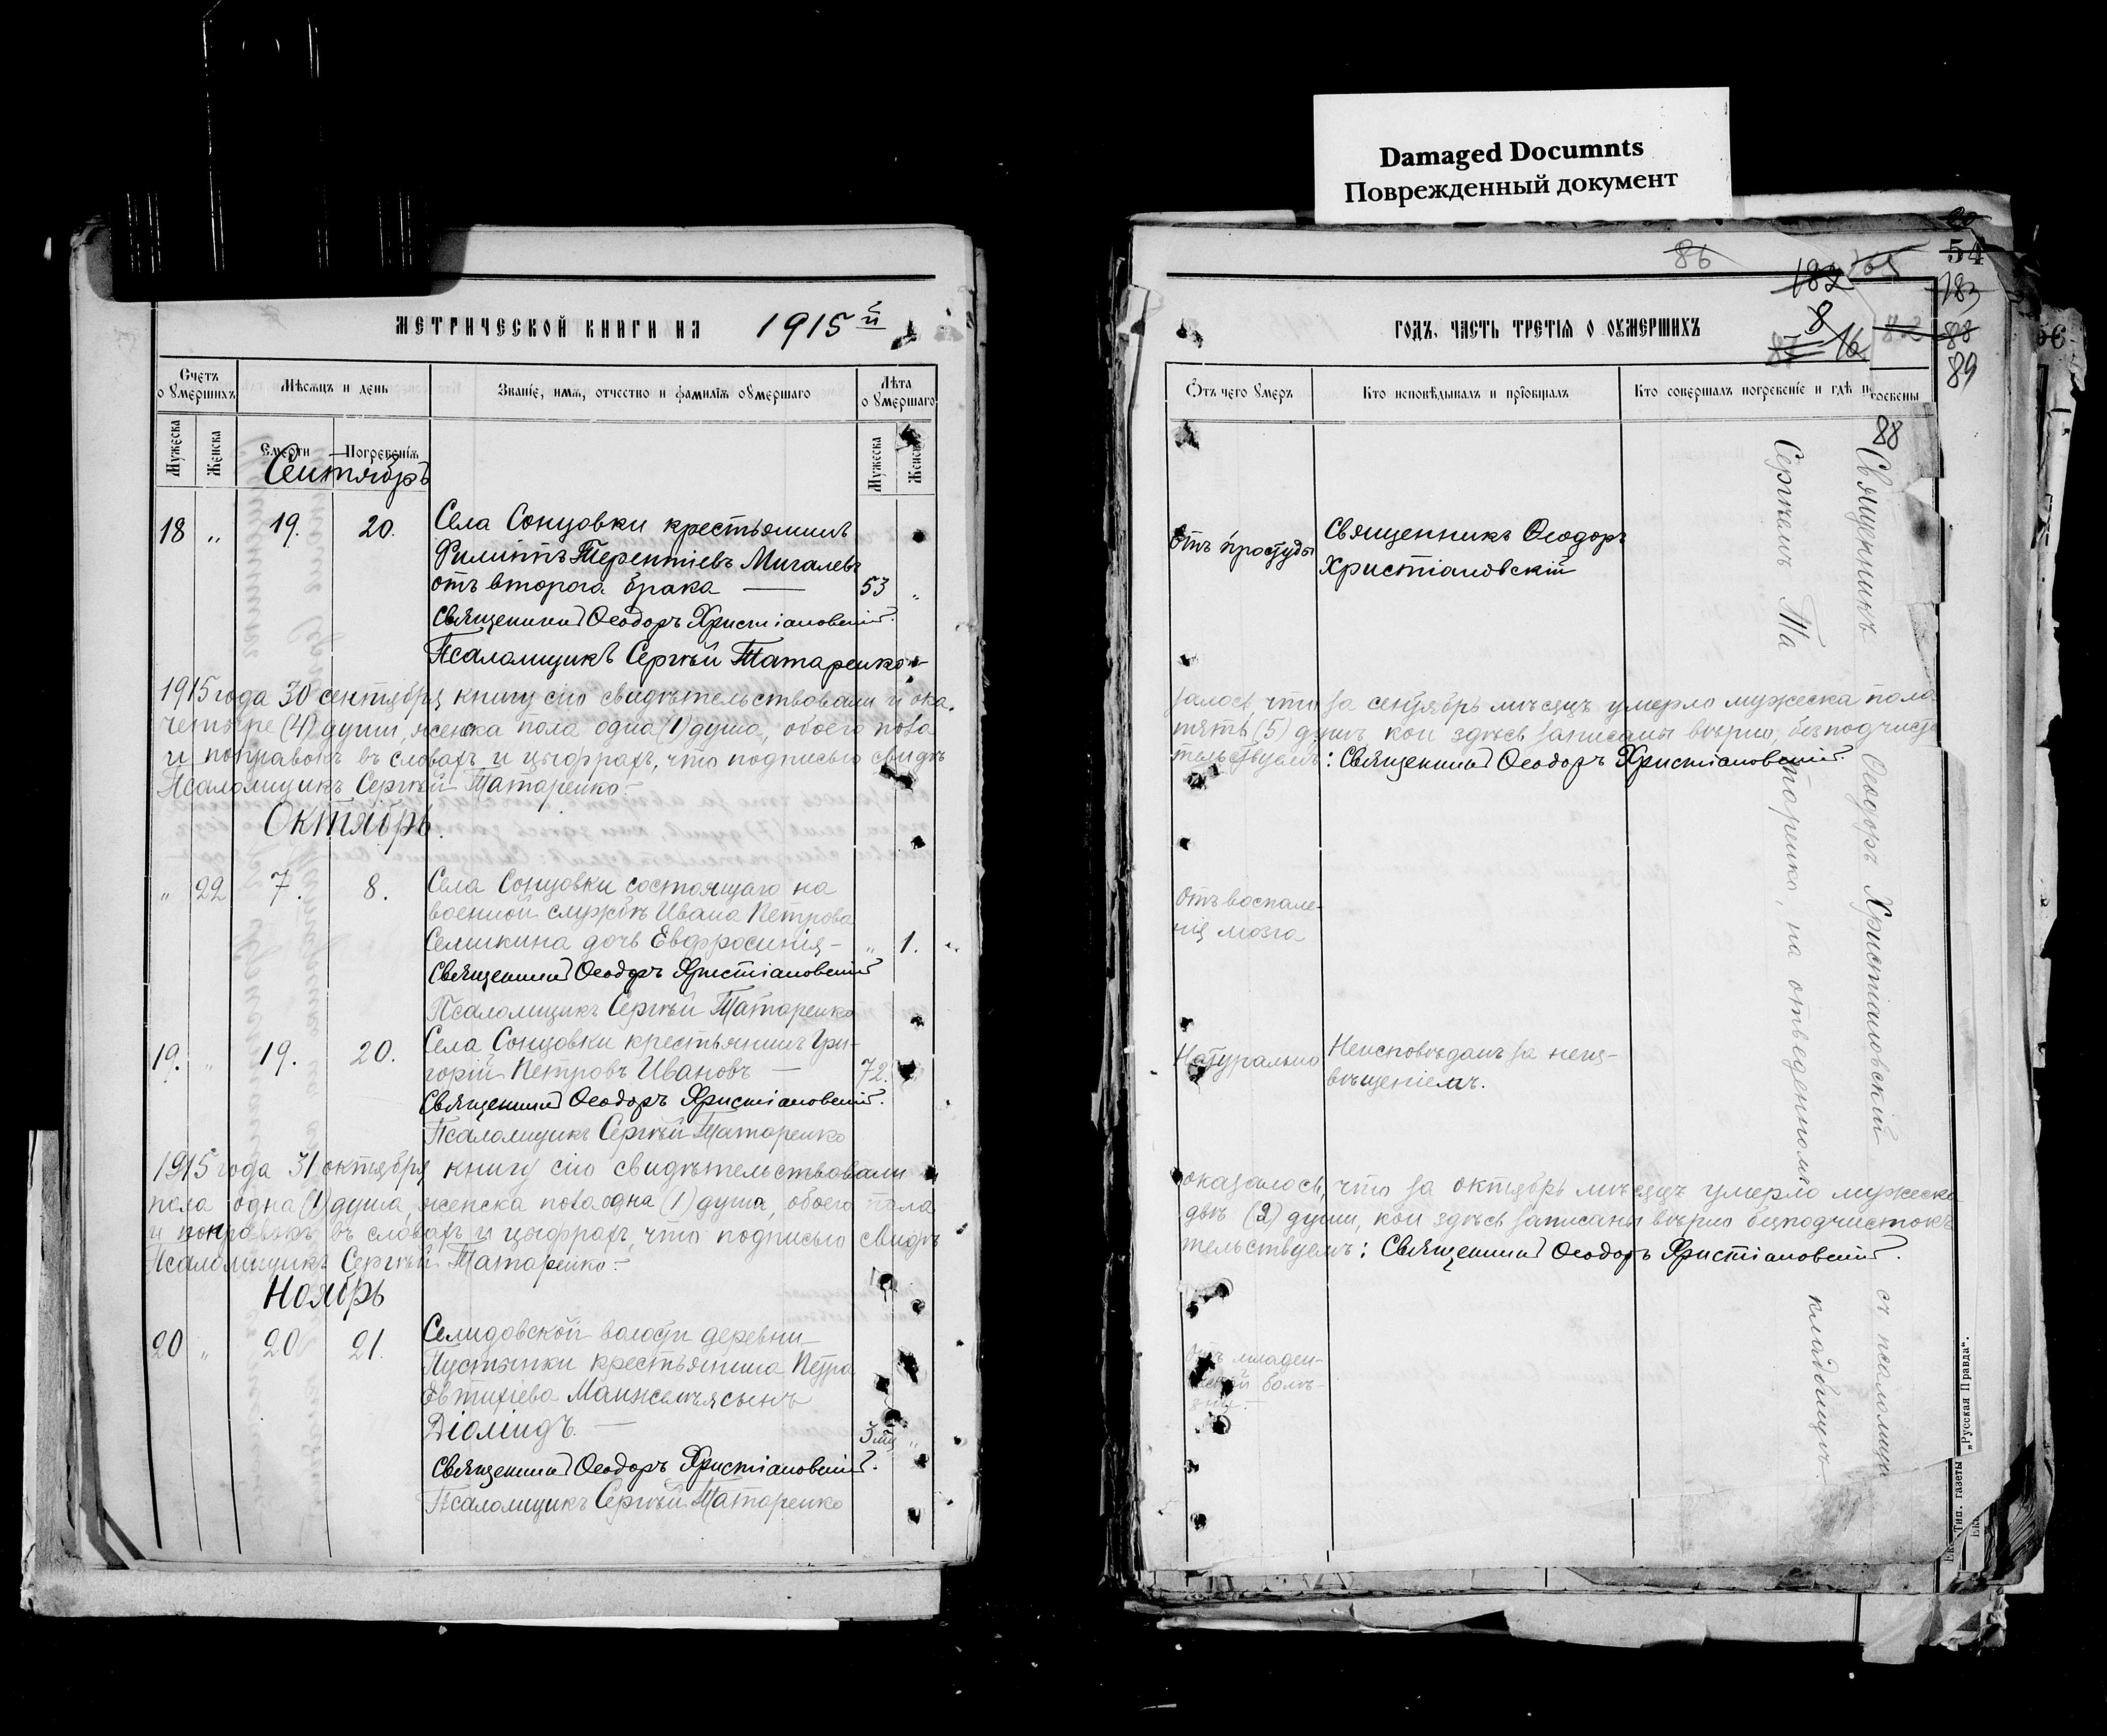 Damaged Documnts
Поврежденный документ
МЕТРИЧЕСКОЙ КНИГИ НА 1915й
Счетъ о умершихъ
Мѣсяцъ и день
Званіе, имя, отчество и фамилія умершаго
Лѣта о умершаго
Мужеска
Женска
Смерти
Погребенія
Мужеска
Женска
Сентябрь
18 „ 19. 20. Села Сонцовки крестьянинъ
Филиппъ Терентіевъ Мигалевъ
отъ второго брака — 53 „
Священникъ Ѳеодоръ Христіановскій.
Псаломщикъ Сергѣй Татаренко
1915 года 30 сентября книгу сію свидѣтельствовали и ока-
четыре (4) души, женска пола одна (1) душа, обоего пола
и поправокъ въ словахъ и цыфрахъ, что подписью свидѣ
Псаломщикъ Сергѣй Татаренко
Октябрь.
„ 22 7. 8. Села Сонцовки состоящаго на
военной службѣ Ивана Петрова
Семикина дочь Евфросинія — „ 1.
Священникъ Ѳеодоръ Христіановскій
Псаломщикъ Сергѣй Татаренко
19. „ 19. 20. Села Сонцовки крестьянинъ Гри-
горій Петровъ Ивановъ — 72.
Священникъ Ѳеодоръ Христіановскій.
Псаломщикъ Сергѣй Татаренко
1915 года 31 октября книгу сію свидѣтельствовали и
пола одна (1) душа, женска пола одна (1) душа, обоего пола
и поправокъ въ словахъ и цыфрахъ, что подписью свидѣ
Псаломщикъ Сергѣй Татаренко
Ноябрь
20 „ 20 21. Селидовской волости деревни
Пустынки крестьянина Петра
Евтихіева сынъ
Діомидъ. — 3 „
Священникъ Ѳеодоръ Христіановскій.
Псаломщикъ Сергѣй Татаренко
86
54
182
183
8
88
16
89
ГОДЪ, ЧАСТЬ ТРЕТІЯ О ОУМЕРШИХЪ
Отъ чего умеръ
Кто исповѣдывалъ и пріобщалъ
Кто совершалъ погребеніе и гдѣ п
гребены
88
Отъ простуды
Священникъ Ѳеодоръ
Христіановскій
залось, что за сентябрь мѣсяцъ умерло мужеска пола
пять (5) душъ кои здѣсь записаны вѣрно, безъ подчисто
тельствуемъ: Священникъ Ѳеодоръ Христіановскій.
Отъ воспале-
нія мозга
Натурально
Неисповѣданъ за неиз-
вѣщеніемъ.
оказалось, что за октябрь мѣсяцъ умерло мужеска
двѣ (2) души, кои здѣсь записаны вѣрно безъ подчистокъ
тельствуемъ: Священникъ Ѳеодоръ Христіановскій.
отъ младен-
ской болѣ-
зни. —
Священникъ Ѳеодоръ Христіановскій съ псаломщи
Сергѣемъ Татаренко, на отведенномъ кладбищѣ.
Тип. газеты „Русская Правда“.